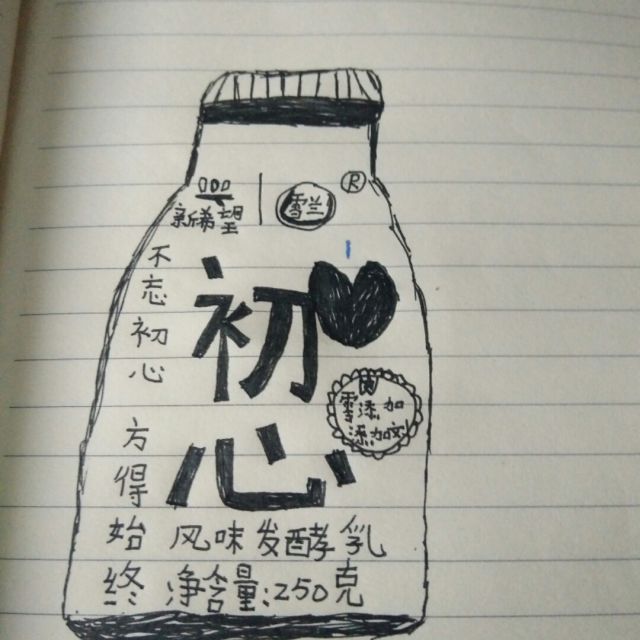 新希望 雪兰 ®
不忘初心
方得始终
初心
零添加
添加剂
风味发酵乳
净含量:250克